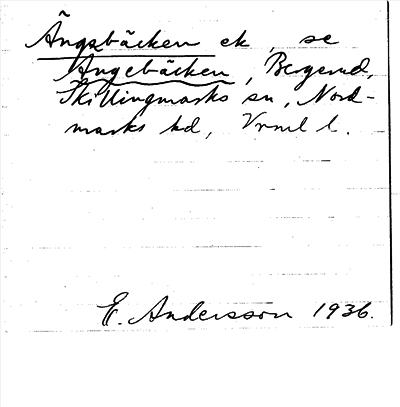 Ängsbäcken ek, se
Ängebäcken, Bergerud,
Skillingmarks sn, Nord-
marks hd, Vrml l.
E. Andersson 1936.